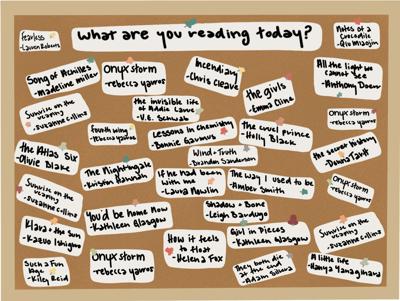 what are you reading today?
fearless
-Lauren Roberts
Notes of a
Crocodile
-Qiu Miaojin
Song of Achilles
-Madeline Miller
Onyx storm
-rebecca yarros
Incendiary
-Chris Cleave
the girls
-Emma Cline
All the light we
cannot see
-Anthony Doerr
Sunrise on the
reaping
-Suzanne Collins
the invisible life
of Addie Larue
-V.E. Schwab
Onyx storm
-rebecca yarros
fourth wing
-rebecca yarros
Lessons in Chemistry
-Bonnie Garmus
The cruel prince
-Holly Black
the secret history
-Donna Tartt
the Atlas Six
-Olivie Blake
The Nightingale
-Kristin Hannah
Wind + Truth
-Brandon Sanderson
If he had been
with me
-Laura Nowlin
The way I used to be
-Amber Smith
Onyx storm
-rebecca yarros
Sunrise on the
reaping
-Suzanne Collins
You'd be home now
-Kathleen Glasgow
Shadow + Bone
-Leigh Bardugo
Klara + the Sun
-Kazuo Ishiguro
How it feels
to float
-Helena Fox
Girl in Pieces
-Kathleen Glasgow
Sunrise on the
reaping
-Suzanne Collins
Such a Fun
Age
-Kiley Reid
Onyx storm
-rebecca yarros
They both die
at the end
-Adam Silvera
A little life
-Hanya Yanagihara